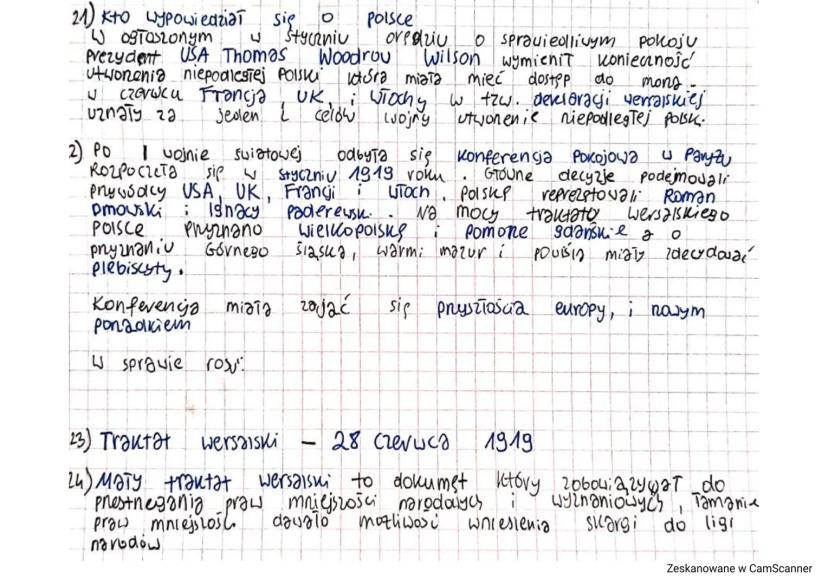 21) Kto wypowiedział się o polsce
W ogłoszonym w styczniu orędziu o sprawiedliwym pokoju
prezydent USA Thomas Woodrow Wilson wymienił konieczność
utworzenia niepodległej Polski która miała mieć dostęp do morza.
w czerwcu Francja, UK, i Włochy w tzw. deklaracji wersalskiej
uznały za jeden z celów wojny utworzenie niepodległej polski.
2) Po I wojnie światowej odbyła się konferencja Pokojowa w Paryżu
Rozpoczęła się w styczniu 1919 roku. Główne decyzje podejmowali
przywódcy USA, UK, Francji i Włoch. Polskę reprezętowali Roman
Dmowski i Ignacy paderewski. Na mocy traktatu wersalskiego
polsce przyznano wielkopolskę i pomorze gdańskie a o
przyznaniu Górnego śląska, warmi mazur i powiśla miały zdecydować
plebiscyty.
Konferencja miała zająć się przyszłością europy, i nowym
porządkiem
W sprawie rosji:
23) Traktat wersalski – 28 czerwca 1919
24) Mały traktat wersalski to dokumęt który zobowiązywał do
przestrzegania praw mniejszości narodowych i wyznaniowych, Łamanie
praw mniejszości dawało możliwość wniesienia skargi do ligi
narodów
Zeskanowane w CamScanner